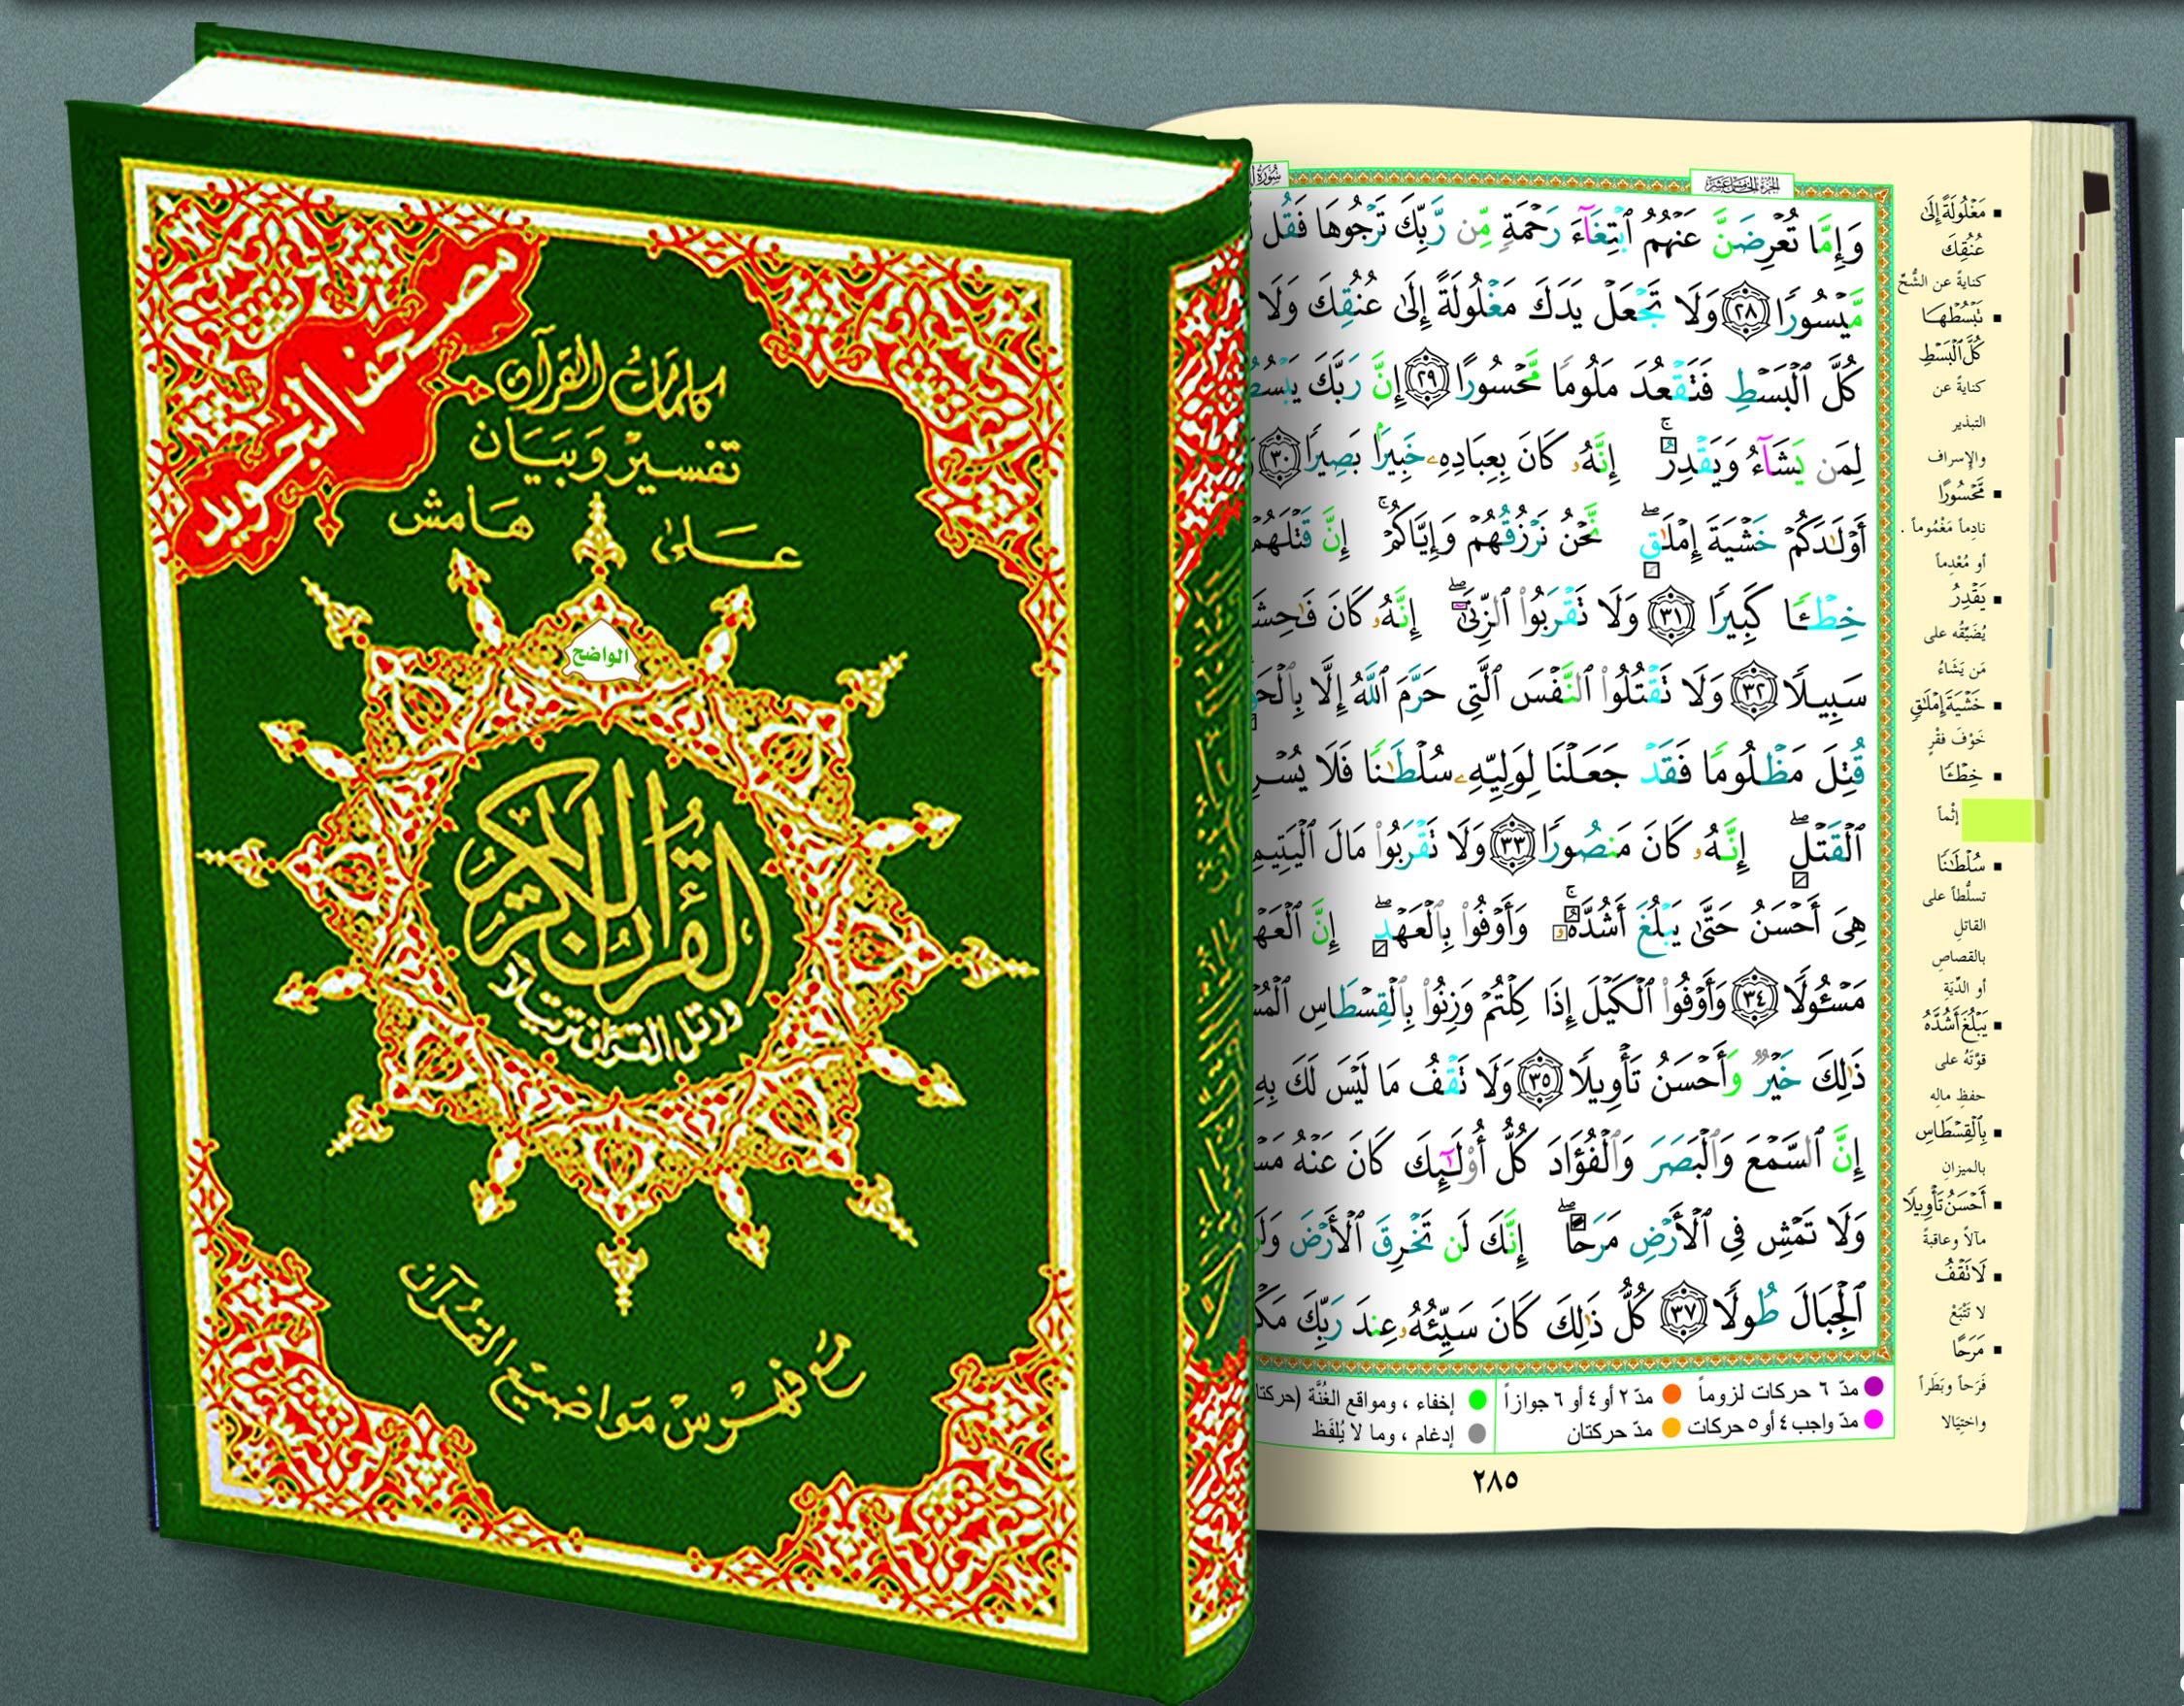 مصحف التجويد
كلمات القرآن
تفسير وبيان
على هامش
الواضح
القرآن الكريم
ورتل القرآن ترتيلا
مع فهرس مواضيع القرآن
سُورَةُ
الجزء الخامس عشر
وَإِمَّا تُعْرِضَنَّ عَنْهُمُ ٱبْتِغَآءَ رَحْمَةٍ مِّن رَّبِّكَ تَرْجُوهَا فَقُل
مَّيْسُورًا ٢٨ وَلَا تَجْعَلْ يَدَكَ مَغْلُولَةً إِلَىٰ عُنُقِكَ وَلَا
كُلَّ ٱلْبَسْطِ فَتَقْعُدَ مَلُومًا مَّحْسُورًا ٢٩ إِنَّ رَبَّكَ يَبْسُطُ
لِمَن يَشَآءُ وَيَقْدِرُ ۚ إِنَّهُۥ كَانَ بِعِبَادِهِۦ خَبِيرًۢا بَصِيرًا ٣٠
أَوْلَٰدَكُمْ خَشْيَةَ إِمْلَٰقٍ ۖ نَّحْنُ نَرْزُقُهُمْ وَإِيَّاكُمْ ۚ إِنَّ قَتْلَهُمْ
خِطْـًٔا كَبِيرًا ٣١ وَلَا تَقْرَبُوا۟ ٱلزِّنَىٰٓ ۖ إِنَّهُۥ كَانَ فَٰحِشَ
سَبِيلًا ٣٢ وَلَا تَقْتُلُوا۟ ٱلنَّفْسَ ٱلَّتِى حَرَّمَ ٱللَّهُ إِلَّا بِٱلْحَقِّ
قُتِلَ مَظْلُومًا فَقَدْ جَعَلْنَا لِوَلِيِّهِۦ سُلْطَٰنًا فَلَا يُسْرِ
ٱلْقَتْلِ ۖ إِنَّهُۥ كَانَ مَنصُورًا ٣٣ وَلَا تَقْرَبُوا۟ مَالَ ٱلْيَتِيمِ
هِىَ أَحْسَنُ حَتَّىٰ يَبْلُغَ أَشُدَّهُۥ ۚ وَأَوْفُوا۟ بِٱلْعَهْدِ ۖ إِنَّ ٱلْعَهْ
مَسْـُٔولًا ٣٤ وَأَوْفُوا۟ ٱلْكَيْلَ إِذَا كِلْتُمْ وَزِنُوا۟ بِٱلْقِسْطَاسِ ٱلْمُسْ
ذَٰلِكَ خَيْرٌ وَأَحْسَنُ تَأْوِيلًا ٣٥ وَلَا تَقْفُ مَا لَيْسَ لَكَ بِهِ
إِنَّ ٱلسَّمْعَ وَٱلْبَصَرَ وَٱلْفُؤَادَ كُلُّ أُو۟لَٰٓئِكَ كَانَ عَنْهُ مَسْ
وَلَا تَمْشِ فِى ٱلْأَرْضِ مَرَحًا ۖ إِنَّكَ لَن تَخْرِقَ ٱلْأَرْضَ وَلَن
ٱلْجِبَالَ طُولًا ٣٧ كُلُّ ذَٰلِكَ كَانَ سَيِّئُهُۥ عِندَ رَبِّكَ مَكْ
مَغْلُولَةً إِلَىٰ
عُنُقِكَ
كناية عن الشُّحّ
تَبْسُطْهَا
كُلَّ ٱلْبَسْطِ
كناية عن
التبذير
والإسراف
مَّحْسُورًا
نادِماً مَغْمُوماً .
أو مُعْدِماً
يَقْدِرُ
يُضَيِّقُه على
مَن يَشَاءُ
خَشْيَةَ إِمْلَٰقٍ
خَوْفَ فقْرٍ
خِطْـًٔا
إثْماً
سُلْطَٰنًا
تسلُّطاً على
القاتلِ
بالقصاصِ
أو الدِّيَةِ
يَبْلُغَ أَشُدَّهُ
قوَّتَهُ على
حفظِ مالِه
بِٱلْقِسْطَاسِ
بالميزانِ
أَحْسَنُ تَأْوِيلًا
مآلاً وعاقبةً
لَا تَقْفُ
لا تَتْبَعْ
مَرَحًا
فَرَحاً وبَطَراً
واختِيَالا
مدّ ٦ حركات لزوماً
مدّ ٢ أو ٤ أو ٦ جوازاً
إخفاء ، ومواقع الغُنَّة (حركتا
مدّ واجب ٤ أو ٥ حركات
مدّ حركتان
إدغام ، وما لا يُلفَظ
٢٨٥